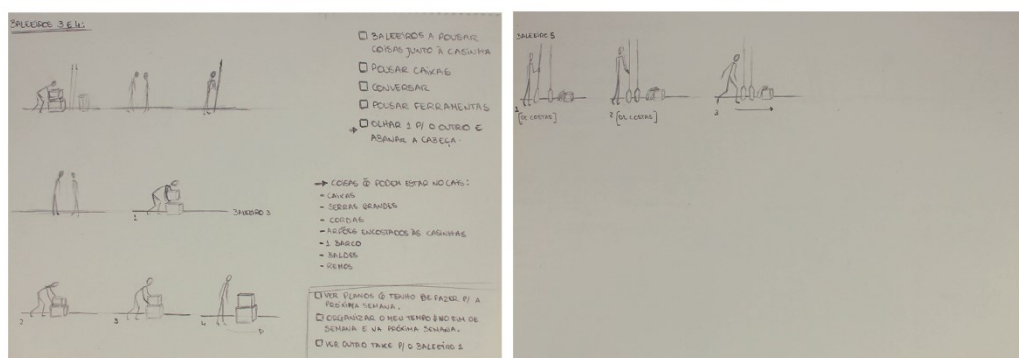 BALEEIROS 3 E 4:
BALEEIROS A POUSAR
COISAS JUNTO À CASINHA
POUSAR CAIXAS
CONVERSAR
POUSAR FERRAMENTAS
→ OLHAR 1 P/ O OUTRO E
ABANAR A CABEÇA.
→ COISAS Q PODEM ESTAR NO CAIS:
- CAIXAS
- SERRAS GRANDES
- CORDAS
- ARPÕES ENCOSTADOS ÀS CASINHAS
- 1 BARCO
- BALDES
- REMOS
1
BALEEIRO 3
2
3
4
VER PLANOS Q TENHO DE FAZER P/ A
PRÓXIMA SEMANA.
ORGANIZAR O MEU TEMPO NO FIM DE
SEMANA E NA PRÓXIMA SEMANA.
VER OUTRO TAKE P/ O BALEEIRO 1
BALEEIRO 5
1
[DE COSTAS]
2
[DE COSTAS]
3